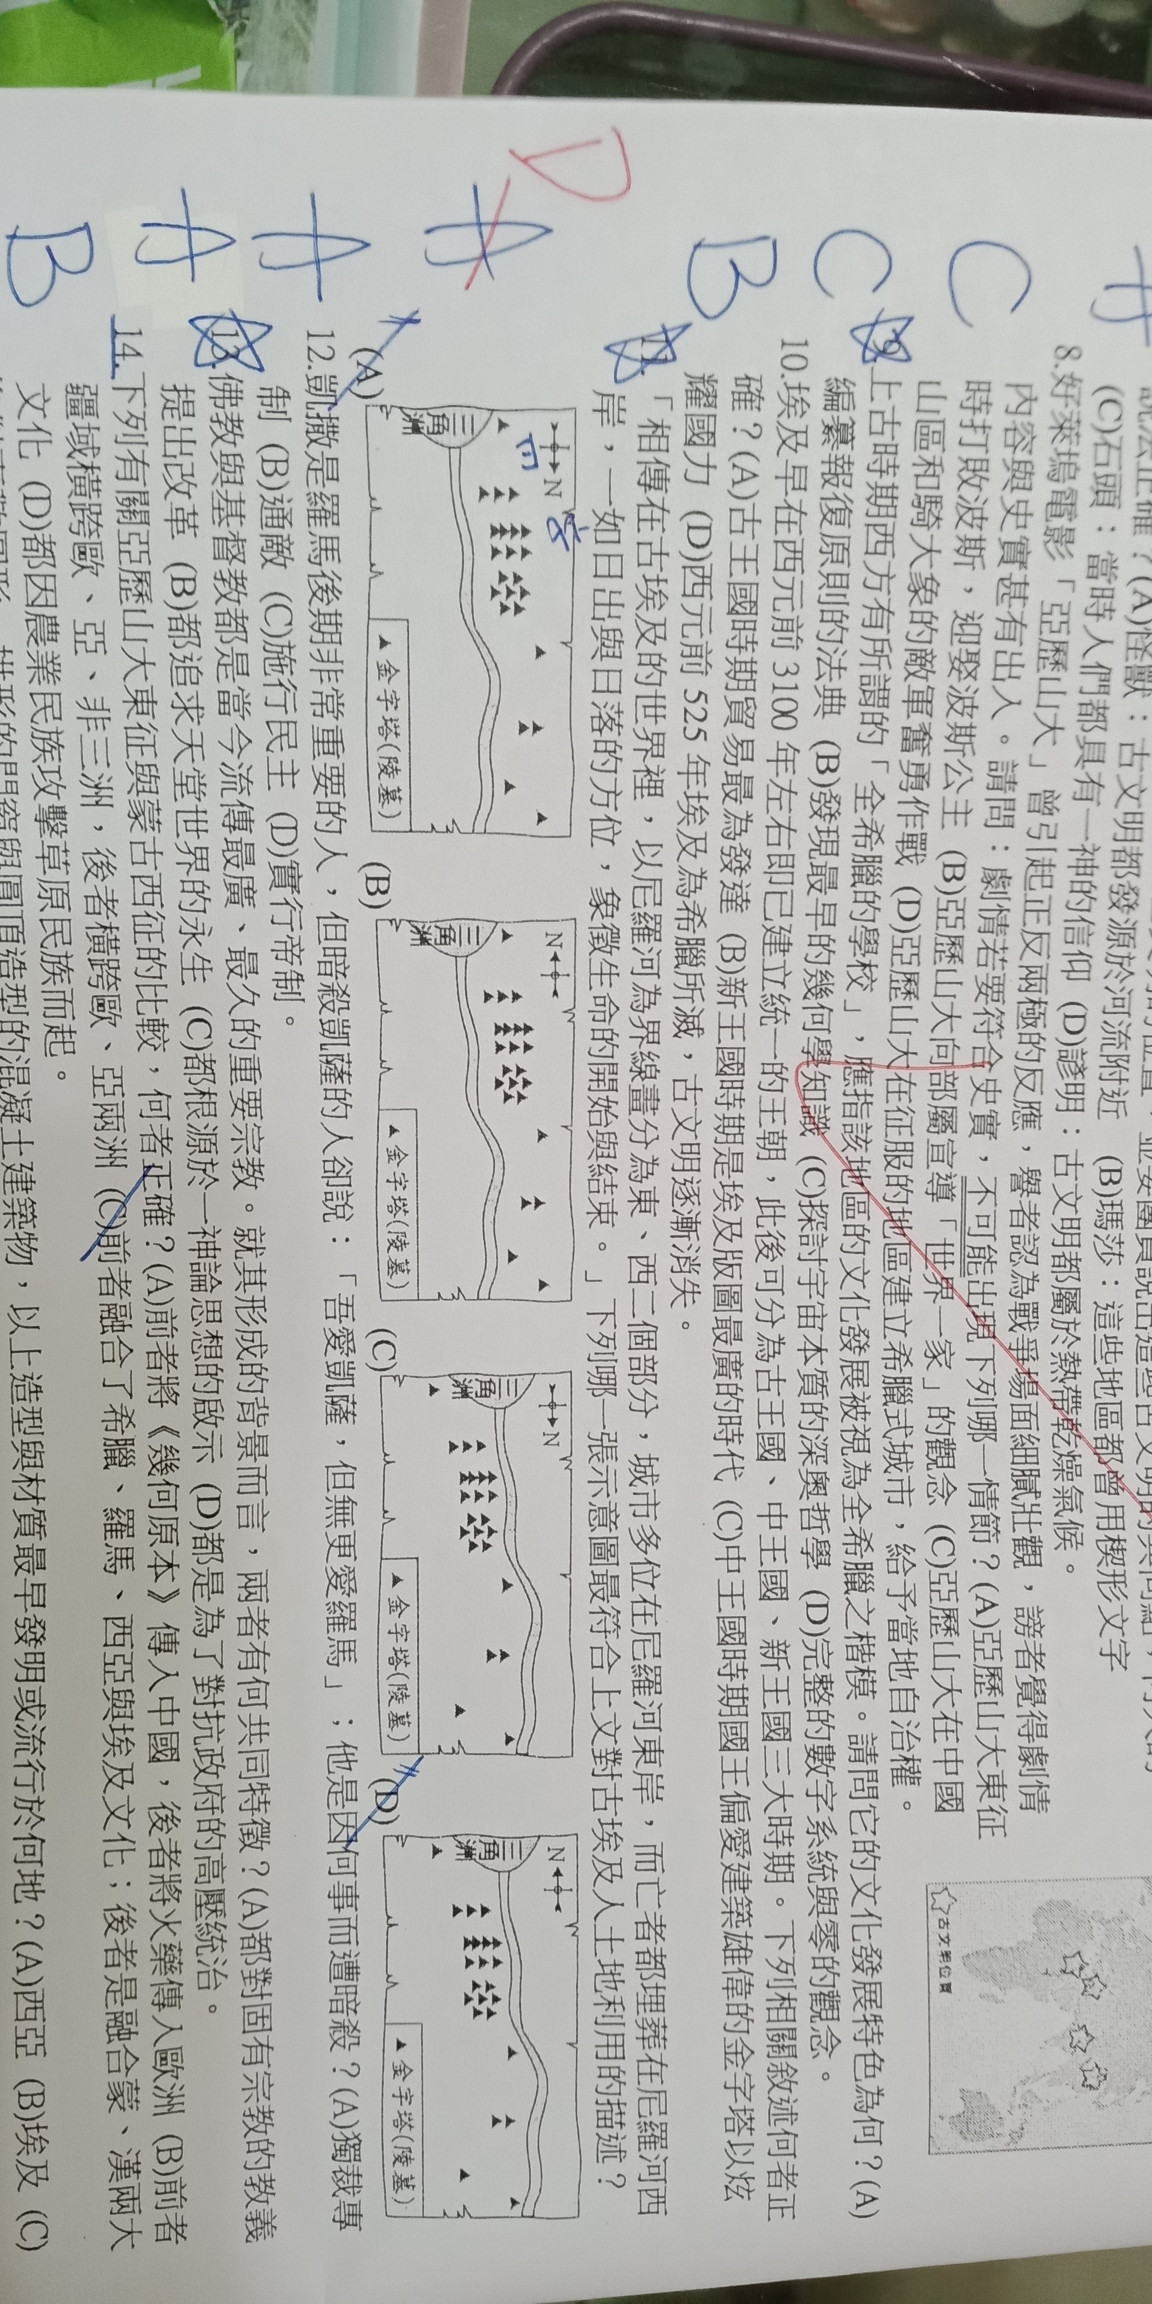 (C)石頭：當時人們都具有一神的信仰 (D)諺明：古文明都屬於熱帶乾燥氣候。
A
8.好萊塢電影「亞歷山大」曾引起正反兩極的反應，譽者認為戰爭場面細膩壯觀，謗者覺得劇情
內容與史實甚有出入。請問：劇情若要符合史實，不可能出現下列哪一情節？(A)亞歷山大東征
時打敗波斯，迎娶波斯公主 (B)亞歷山大向部屬宣導「世界一家」的觀念 (C)亞歷山大在中國
山區和騎大象的敵軍奮勇作戰 (D)亞歷山大在征服的地區建立希臘式城市，給予當地自治權。
☆古文明位置
C
9.上古時期西方有所謂的「全希臘的學校」，應指該地區的文化發展被視為全希臘之楷模。請問它的文化發展特色為何？(A)
編纂報復原則的法典 (B)發現最早的幾何學知識 (C)探討宇宙本質的深奧哲學 (D)完整的數字系統與零的觀念。
C
10.埃及早在西元前 3100 年左右即已建立統一的王朝，此後可分為古王國、中王國、新王國三大時期。下列相關敘述何者正
確？(A)古王國時期貿易最為發達 (B)新王國時期是埃及版圖最廣的時代 (C)中王國時期國王偏愛建築雄偉的金字塔以炫
耀國力 (D)西元前 525 年埃及為希臘所滅，古文明逐漸消失。
B
11.「相傳在古埃及的世界裡，以尼羅河為界線畫分為東、西二個部分，城市多位在尼羅河東岸，而亡者都埋葬在尼羅河西
岸，一如日出與日落的方位，象徵生命的開始與結束。」下列哪一張示意圖最符合上文對古埃及人土地利用的描述？
D
A
(A)
N
三角洲
▲金字塔(陵墓)
(B)
N
三角洲
▲金字塔(陵墓)
(C)
N
三角洲
▲金字塔(陵墓)
(D)
N
三角洲
▲金字塔(陵墓)
12.凱撒是羅馬後期非常重要的人，但暗殺凱薩的人卻說：「吾愛凱薩，但無更愛羅馬」；他是因何事而遭暗殺？(A)獨裁專
制 (B)通敵 (C)施行民主 (D)實行帝制。
A
13.佛教與基督教都是當今流傳最廣、最久的重要宗教。就其形成的背景而言，兩者有何共同特徵？(A)都對固有宗教的教義
提出改革 (B)都追求天堂世界的永生 (C)都根源於一神論思想的啟示 (D)都是為了對抗政府的高壓統治。
A
14.下列有關亞歷山大東征與蒙古西征的比較，何者正確？(A)前者將《幾何原本》傳入中國，後者將火藥傳入歐洲 (B)前者
疆域橫跨歐、亞、非三洲，後者橫跨歐、亞兩洲 (C)前者融合了希臘、羅馬、西亞與埃及文化；後者是融合蒙、漢兩大
文化 (D)都因農業民族攻擊草原民族而起。
B
拱形的門窗與圓頂造型的混凝土建築物，以上造型與材質最早發明或流行於何地？(A)西亞 (B)埃及 (C)